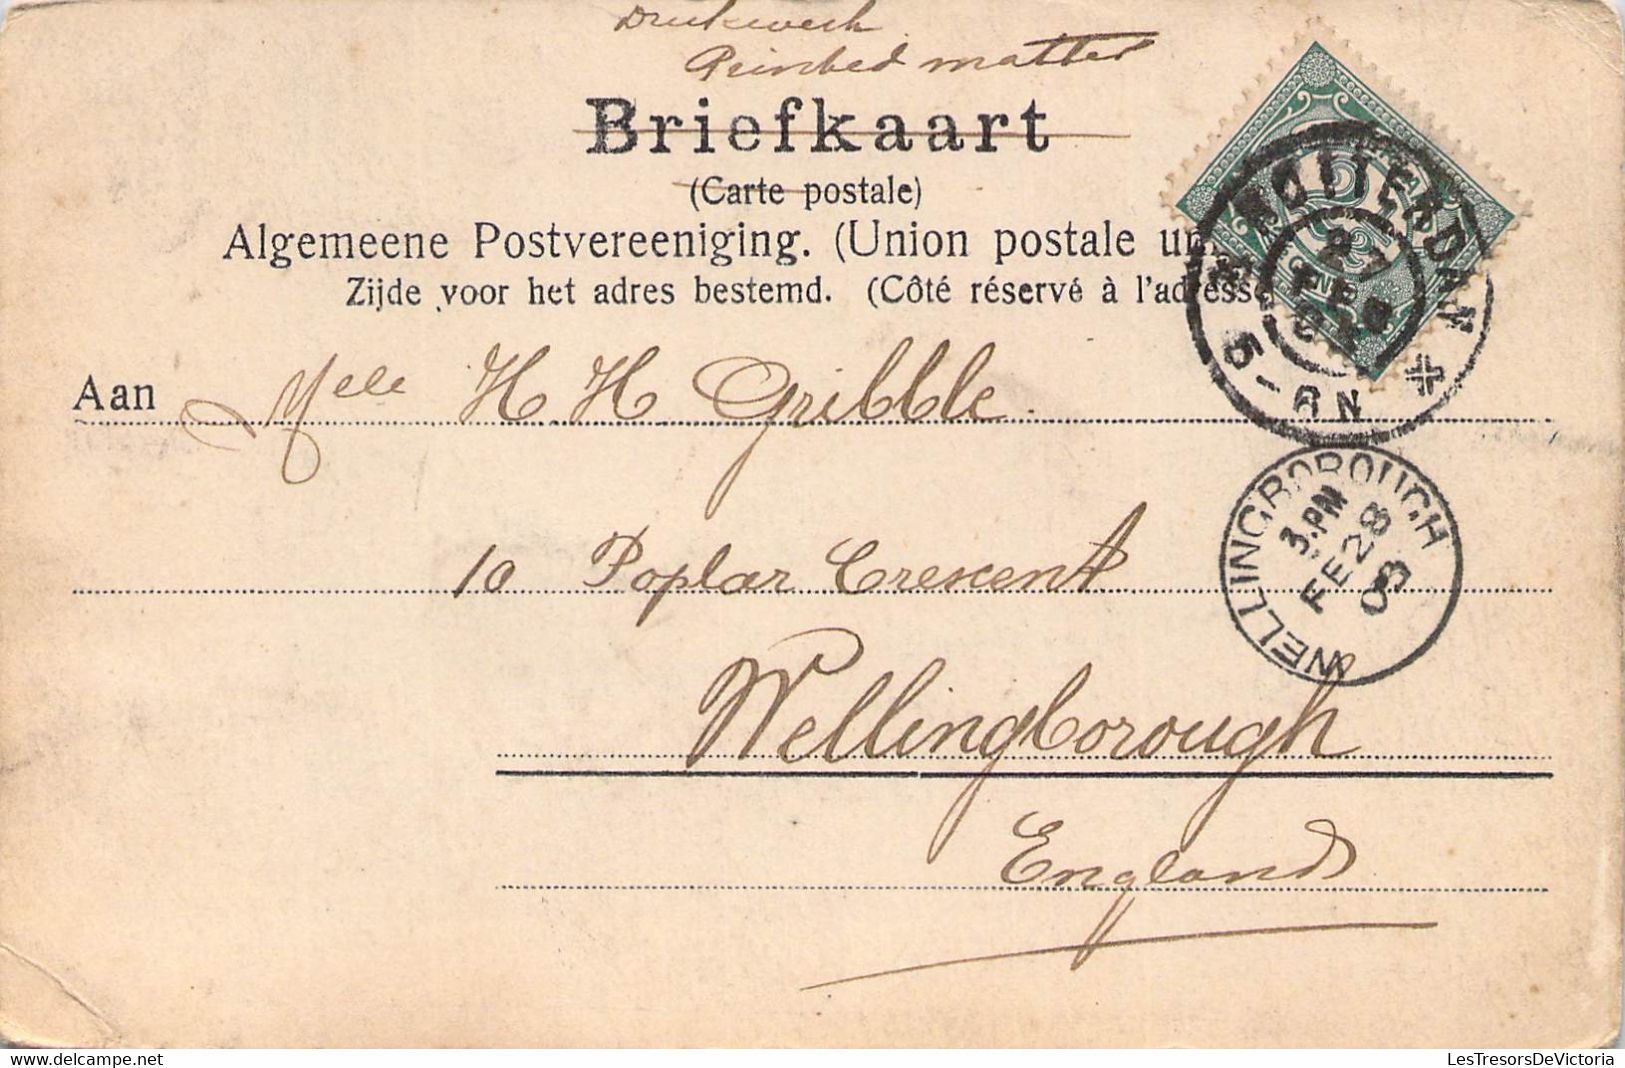 Drukwerk
Prinbed matter
Briefkaart
(Carte postale)
Algemeene Postvereeniging. (Union postale un
Zijde voor het adres bestemd. (Côté réservé à l'adresse
ROTTERDAM
27
FEB
03
5-6N
Aan Melle H H Gribble
WELLINGBOROUGH
3.PM
FE 28
03
10 Poplar Crescent
Wellingborough
England
LesTresorsDeVictoria
https://www.delcampe.net/store/LesTresorsDeVictoria